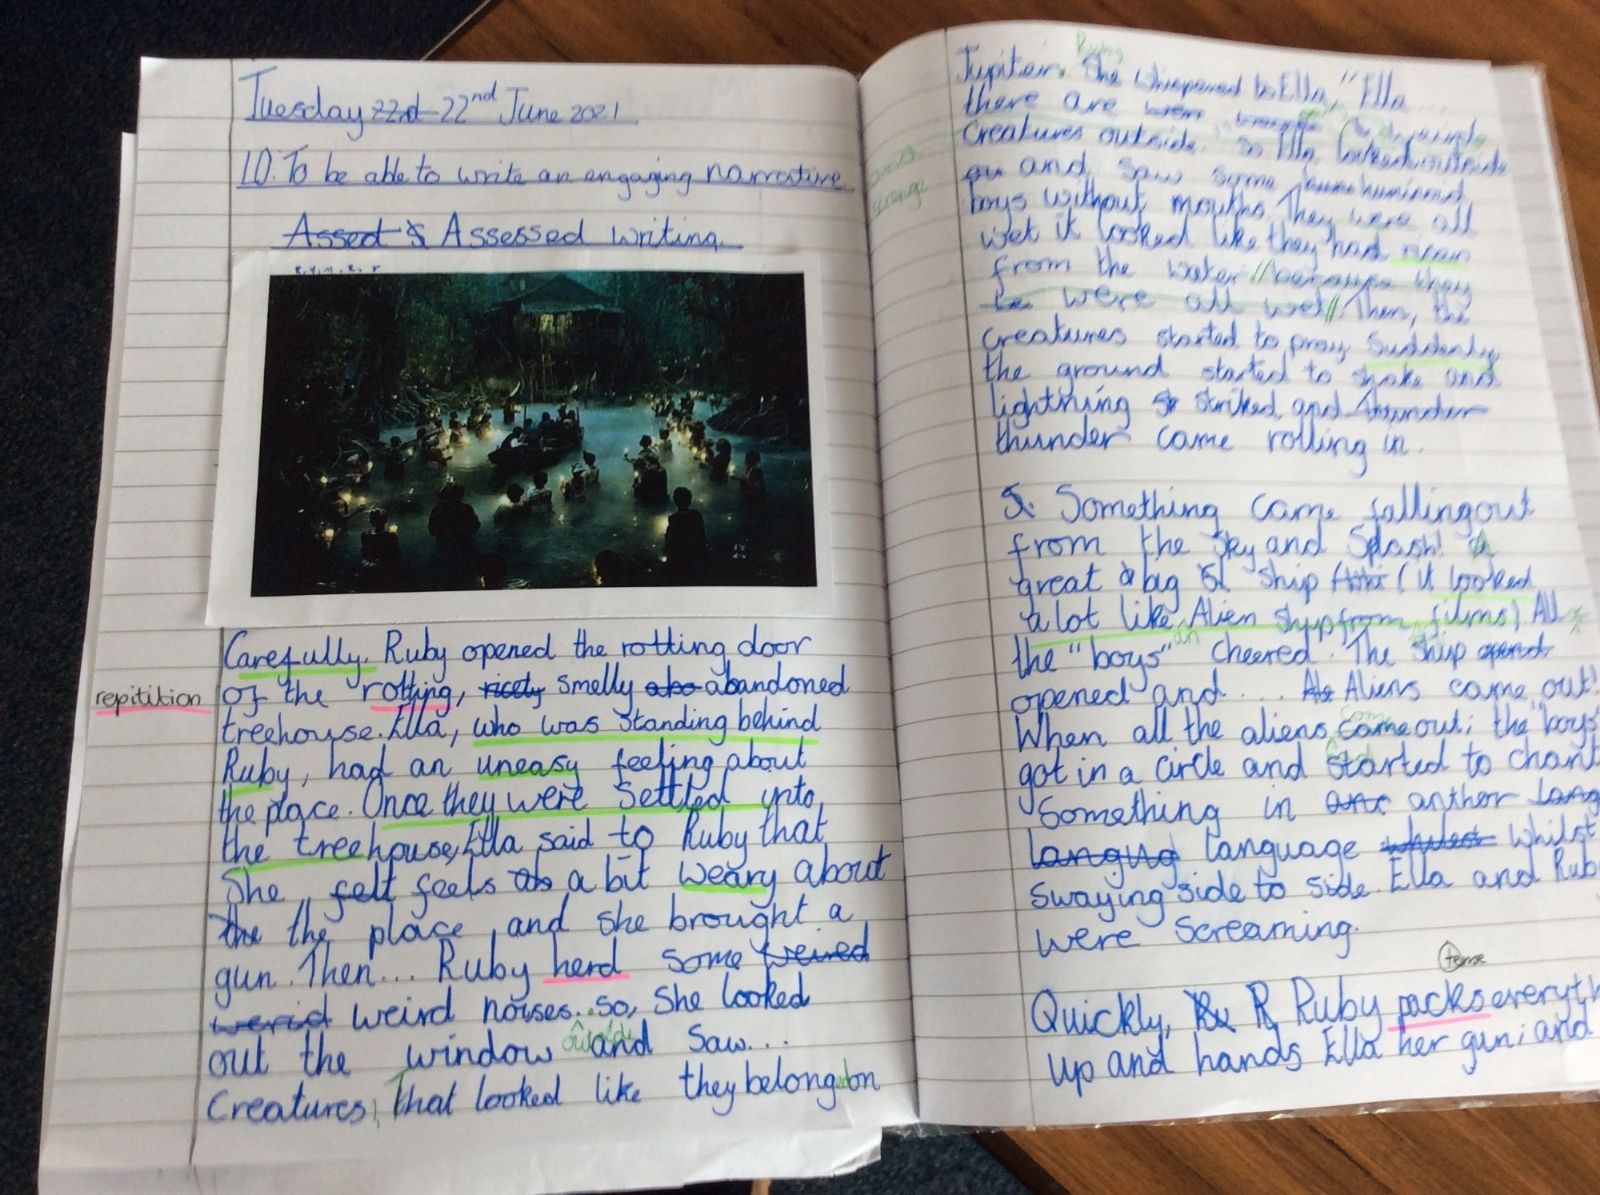 Tuesday 22rd 22nd June 2021
LO: To be able to write an engaging narrative
Assed Assessed writing
Carefully, Ruby opened the rotting door
repitition
of the rotting, smelly abandoned
treehouse. Ella, who was standing behind
Ruby, had an uneasy feeling about
the place. Once they were settled into
the treehouse, Ella said to Ruby that
she felt feels a bit weary about
the the place and she brought a
gun. Then... Ruby herd some weired
werid weird noises. so, she looked
out the window and saw...
Creatures, That looked like they belonged on
Jupiter. Ruby
She whispered to Ella, "Ella
there are
and
strange
creatures outside. So Ella looked outside
and saw some
boys without mouths. They were all
wet it looked like they had risen
from the water //because they
were all wet// Then, the
creatures started to pray Suddenly
the ground started to shake and
lightning striked and thunder
thunder came rolling in.
Something came falling out
from the sky and Splash! A
great big ship (it looked
a lot like Alien ship from films) All
an
the "boys" cheered. The ship opend
opened and... Aliens came out!
When all the aliens came out; the "boys
got in a circle and started to chant
Something in anthor lang
langug language whilst
swaying side to side. Ella and Rub
were screaming.
tense
Quickly, R Ruby packs everyth
up and hands Ella her gun; and